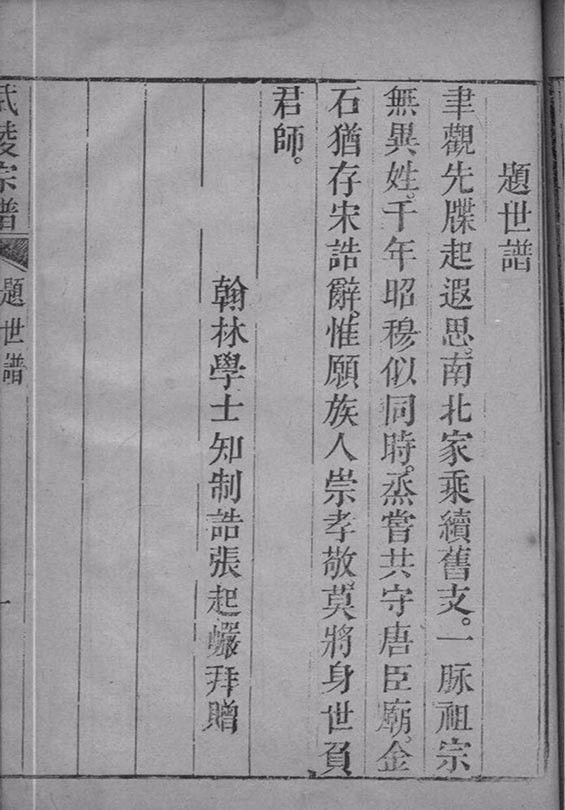 題世譜
聿觀先牒起遐思。南北家乘續舊支。一脉祖宗
無異姓。千年昭穆似同時。烝嘗共守唐臣廟。金
石猶存宋誥辭。惟願族人崇孝敬。莫將身世負
君師。
翰林學士知制誥張起巖拜贈
武陵宗譜
題世譜
一